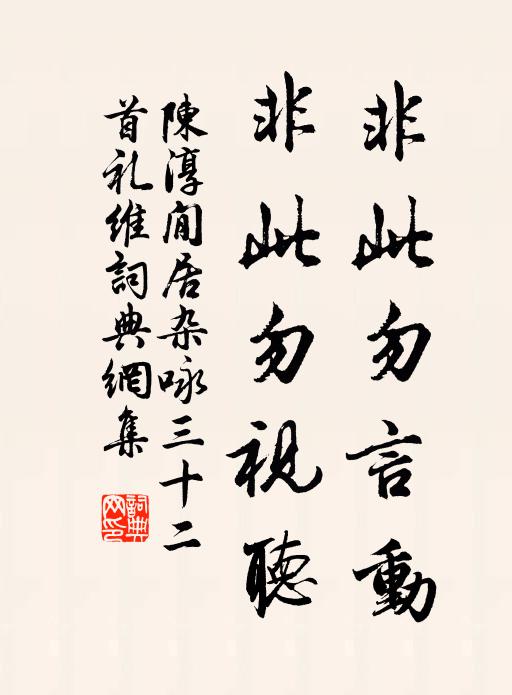 非此勿言動
非此勿視聽
陳淳閒居杂咏三十二
首礼維詞典網集
詞典
网印